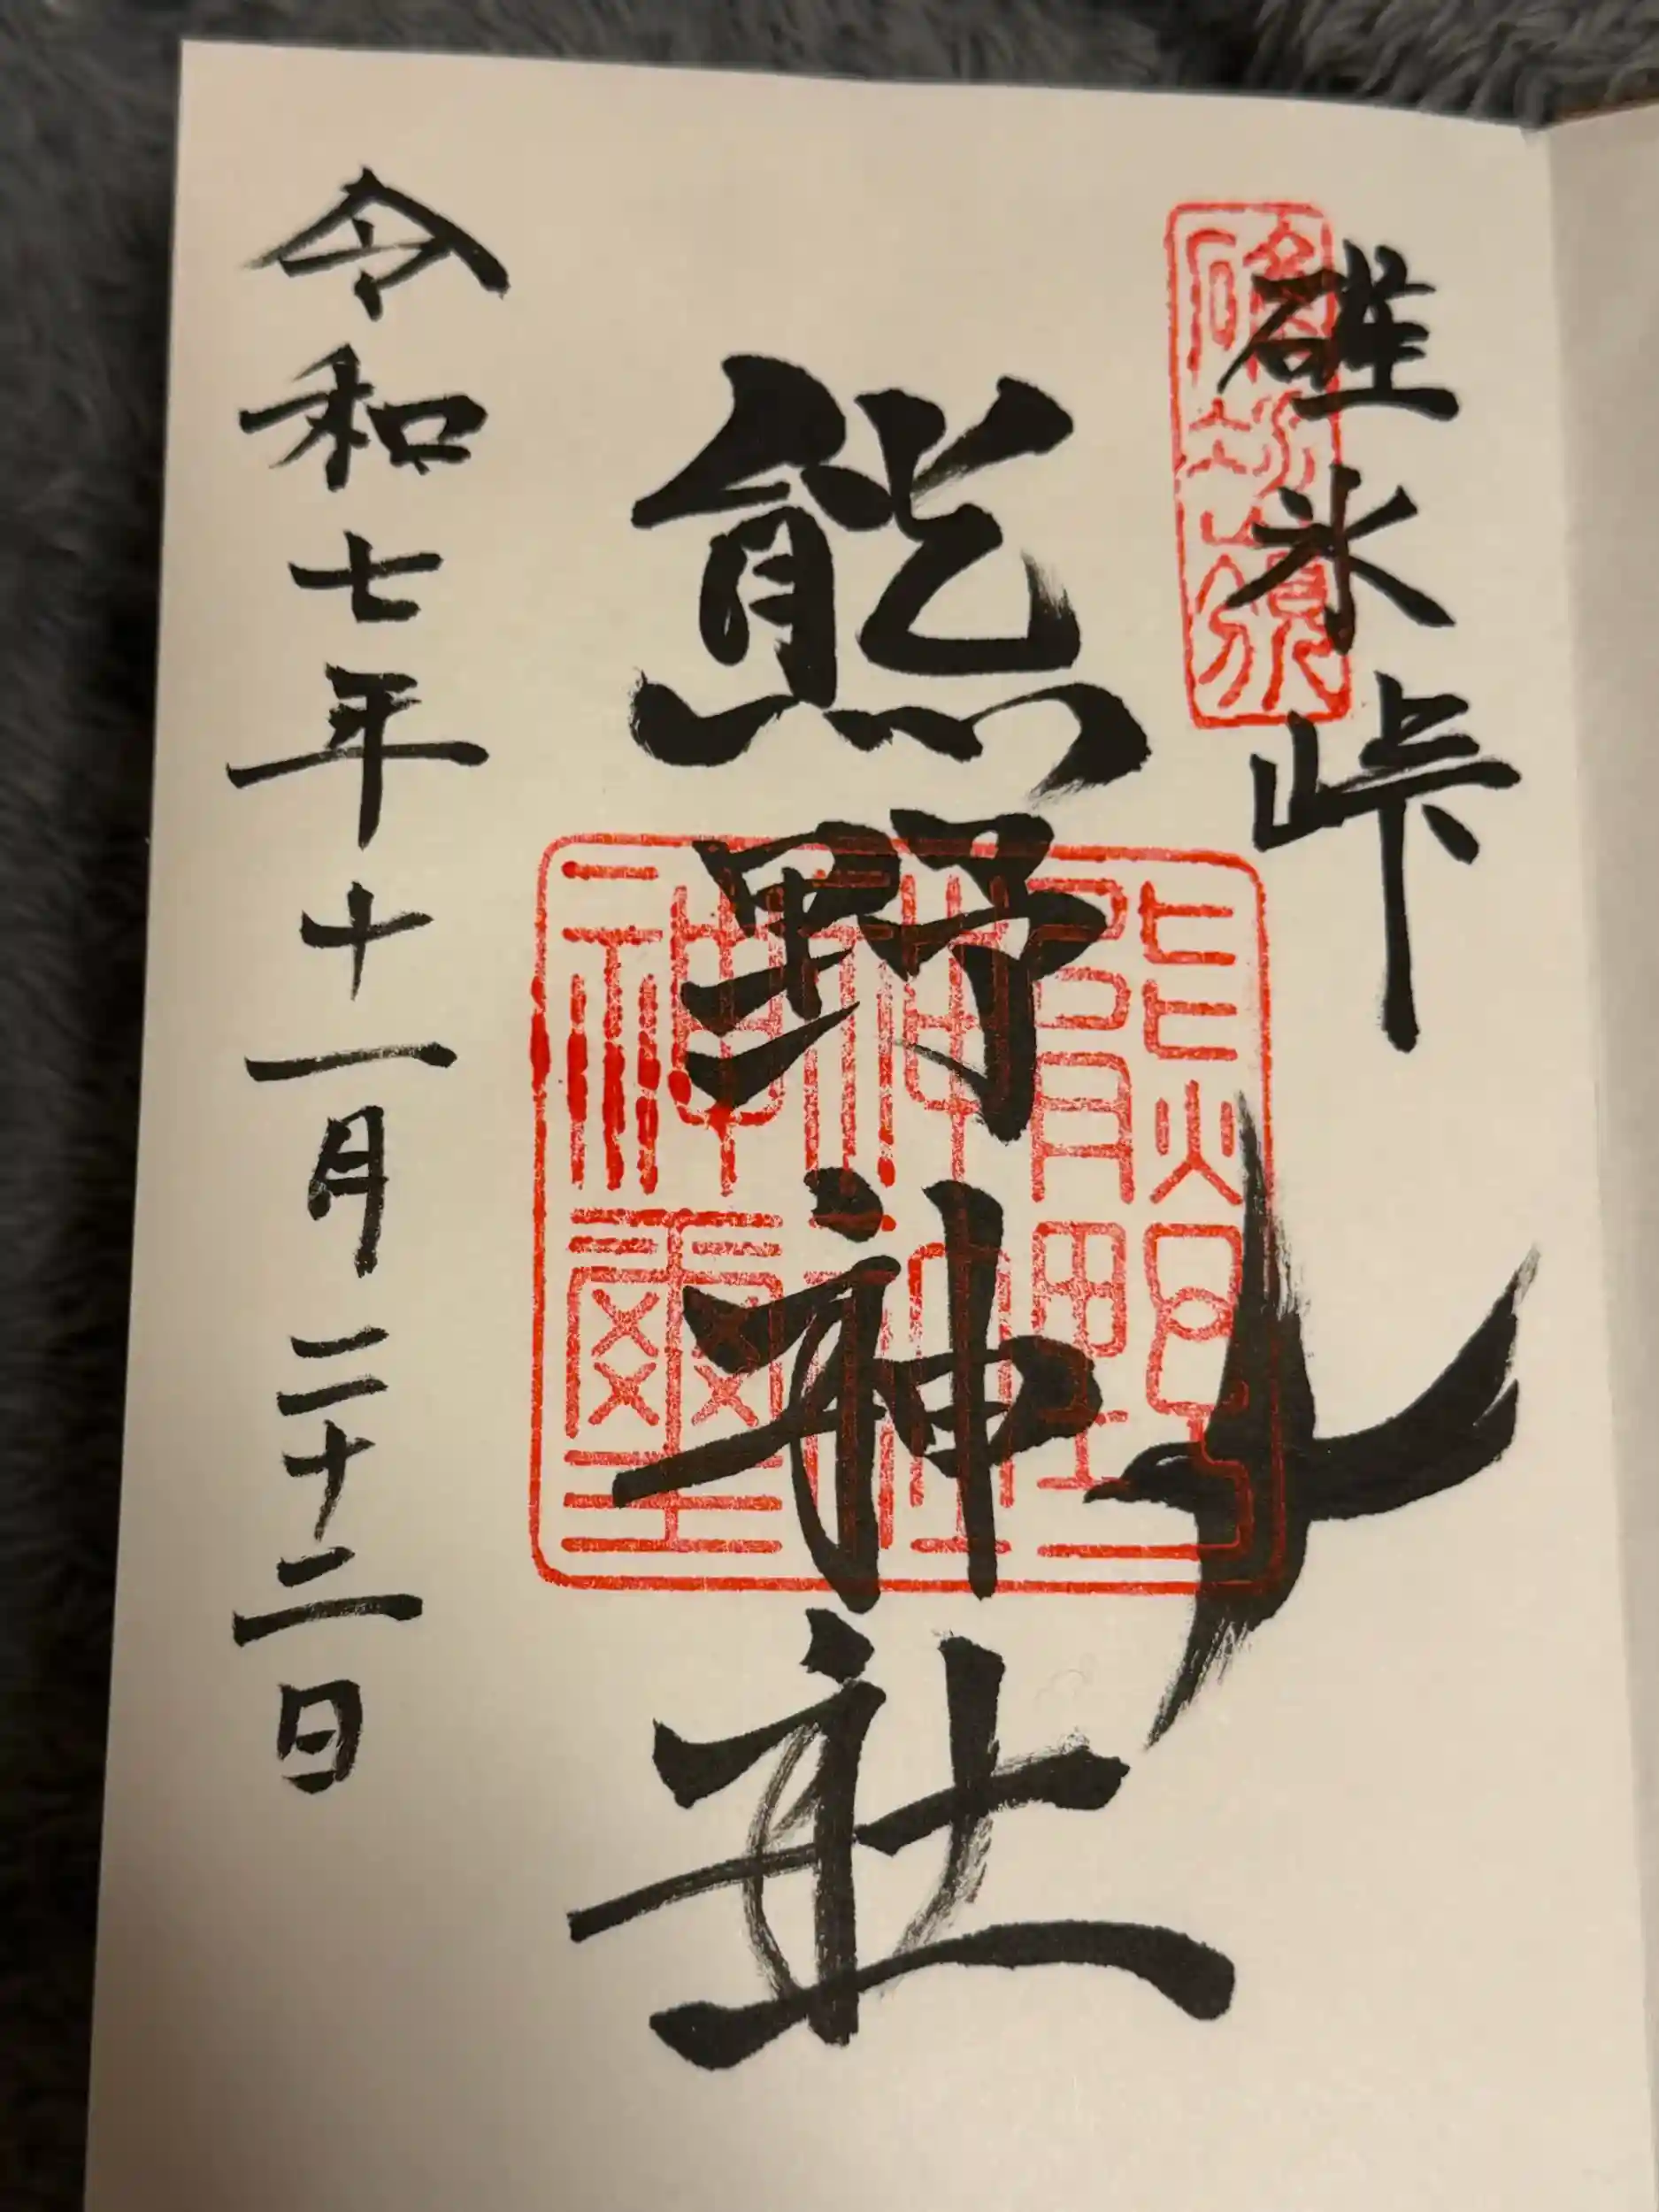 碓氷峠
熊野神社
熊野
神社
神璽
令和七年十一月二十二日